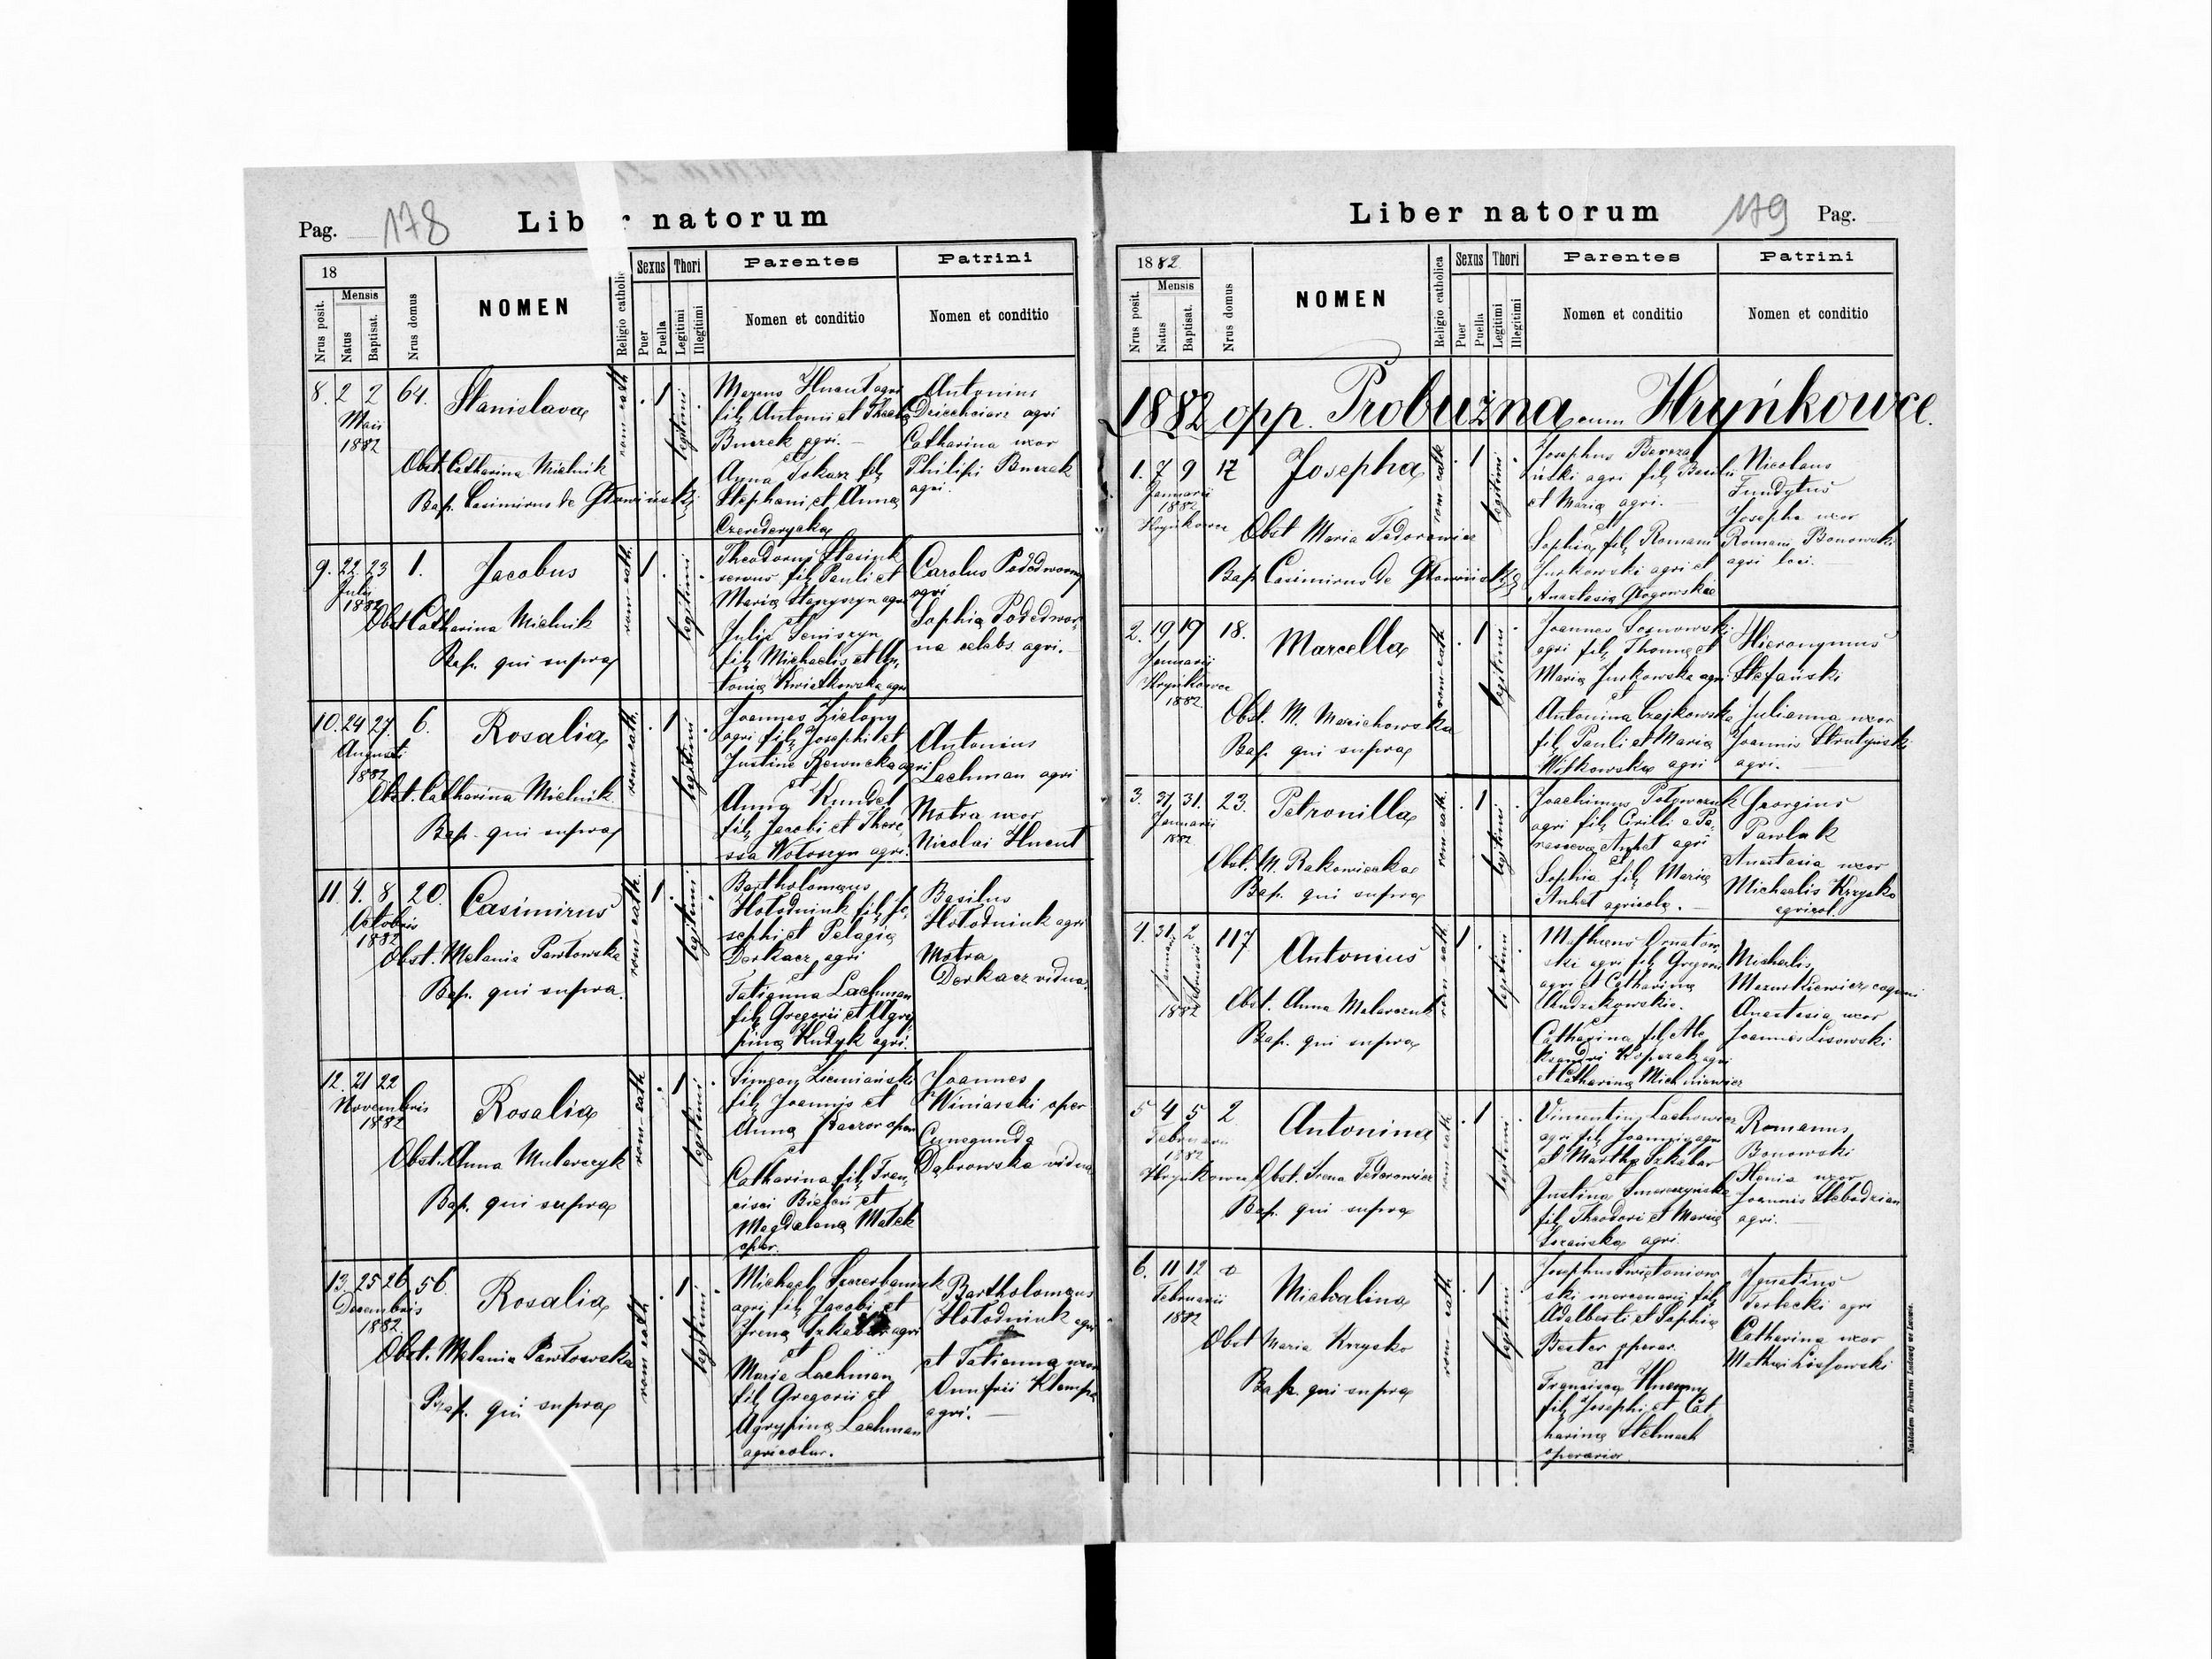 Pag. 178
Liber natorum
18
Nrus posit.
Mensis
Natus
Baptisat.
Nrus domus
NOMEN
Religio catholic
Sexus
Puer
Puella
Thori
Legitimi
Illegitimi
Parentes
Nomen et conditio
Patrini
Nomen et conditio
8. 2 2 64. Stanislava
Maii
1882
Obst. Catharina Mielnik
Bap. Casimirus de
rom-cath
legitimi
fil. Antonii et
agri.
et
Anna Tokarz fil.
Stephani et Anna
Antonius
agri
Catharina uxor
Philipi
agri.
9. 22. 23 1. Jacobus
Julii
1882
Obst. Catharina Mielnik
Bap. qui supra
rom-cath.
legitimi
Theodorus Stasiuk
servus fil. Pauli et
Maria
et
Julia
fil. Michaelis et An-
tonia Kwiatkowska agr
Carolus Pododworny
agri
Sophia Pododwor-
na celebs agri.
10. 24 27. 6. Rosalia
Augusti
1882
Obst. Catharina Mielnik
Bap. qui supra
rom-cath.
legitimi
Joannes Zielony
agri fil. Josephi et
Justine
et
Anna Kundel
fil. Jacobi et There-
ssa Wołoszyn agri.
Antonius
Lachman agri
Motra uxor
Nicolai Hnent
11. 4. 8. 20. Casimirus
Octobris
1882
Obst. Melania Pawłowska
Bap. qui supra.
rom-cath.
legitimi
Bartholomaus
Hołodniuk fil. Jo-
sephi et Pelagia
Derkacz agri
et
Tatianna Lachman
fil. Gregorii et Agry-
pina Kudyk agri.
Basilus
Hołodniuk agri
Motra
Derkacz vidua.
12. 21 22 Rosalia
Novembris
1882
Obst. Anna Mularczyk
Bap. qui supra
rom-cath
legitimi
Simeon Ziemiański
fil. Joannis et
Anna
et
Catharina fil. Fran-
cisci Biełań et
Magdalena Małek
oper.
Joannes
Winiarski oper
Cunegunda
Dąbrowska vidua
13. 25 26 56. Rosalia
Decembris
1882
Obst. Melania Pawłowska
Bap. qui supra
rom cath
legitimi
Michael Szczerbaniuk
agri fil. Jacobi et
Irena agri
et
Maria Lachman
fil. Gregorii et
Agrypina Lachman
agricolar.
Bartholomaus
Hołodniuk agri
et Tatianna uxor
Onufrii Klempa
agri.
Liber natorum
179 Pag.
1882
Nrus posit.
Mensis
Natus
Baptisat.
Nrus domus
NOMEN
Religio catholica
Sexus
Puer
Puella
Thori
Legitimi
Illegitimi
Parentes
Nomen et conditio
Patrini
Nomen et conditio
1882 opp. Probużna cum Hryńkowce.
1. 7 9 17 Josepha
Januarii
1882
Hryńkowce
Obst Maria Fedorowicz
Bap Casimirus de
rom-cath
legitimi
Josephus
agri fil. Basilii
et Maria agri.
et
Sophia fil. Romani
Jurkowski agri et
Anastasia Głogowskie
Nicolaus
Fundytus
Josepha uxor
Romani Bonowski
agri loci.
2. 19 19 18. Marcella
Januarii
Hryńkowce
1882
Obst. M.
Bap. qui supra
rom-cath
legitimi
Joannes Sosnowski
agri fil. Thoma et
Maria Jurkowska agri
et
Antonina Czajkowska
fil. Pauli et Maria
Witkowska agri
Hieronymus
Stefański
Julianna uxor
Joannis Strutyński
agri.
3. 31. 31. 23. Petronilla
Januarii
1882
Obst. M. Rakowiecka
Bap. qui supra
rom-cath.
legitimi
Joachimus
agri fil. Cirilli e Pa-
rasceva agri
et
Sophia fil. Maria
agricola.
Georgius
Pawluk
Anastasia uxor
Michaelis Krzysko
agricol.
4. 31. 2 117 Antonius
Januarii Februarii
1882
Obst. Anna Malarczuk
Bap. qui supra
rom-cath
legitimi
Matheus Ornatow-
ski agri fil. Gregorii
agri et Catharina
Andrzkowskie.
et
Catharina fil. Ale-
ksandri Koperak agri
et Catharina Michniewicz
Michaelis
Mazurkiewicz
Anastasia uxor
Joannis Lisowski
5 4 5 2 Antonina
Februarii
1882
Hryńkowce Obst. Irena Fedorowicz
Bap. qui supra
rom-cath
legitimi
Vincentius Lachowicz
agri fil. Joannis agri
et Martha Szkabar
et
Justina
fil. Theodori et Maria
agri
Romanus
Bonowski
uxor
Joannis Słobodzian
agri.
6. 11 12 Michalina
Februarii
1882
Obst Maria Krzysko
Bap. qui supra
rom-cath
legitimi
Josephus Świętoniow-
ski mercenarii fil.
Adalberti et Sophia
Bester operar.
et
Francisca
fil. Josephi et Cat-
harina Stelmach
operarior.
Ignatius
Terlecki agri
Catharina uxor
Mathei Lisowski
Nakładem Drukarni Ludowej we Lwowie.